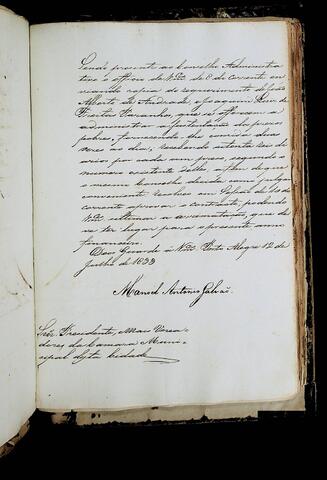 Sendo presente ao Conselho Administra-
tivo o officio de VMces de 8 do corrente en-
viando copia do requerimento de João
Alberto de Andrade, e Joaquim José de
Freitas que se offerecem a
administrar a sustentação dos presos
pobres, fornecendo-lhe comida duas
vezes ao dia, recebendo oitenta reis di-
arios por cada um preso, segundo o
numero existente delles, a fim de que
o mesmo Conselho decida como julgar
conveniente, resolveo em Sessão de 11 do
corrente aprovar o contracto, podendo
VMces ultimar a arrematação, que de-
ve ter lugar para o presente anno
financeiro.
Deos Guarde a VMces Porto Alegre 12 de
Julho de 1839
Manoel Antonio Galvão
Snrs. Presidente, e Mais Verea-
dores da Camara Muni-
cipal desta Cidade